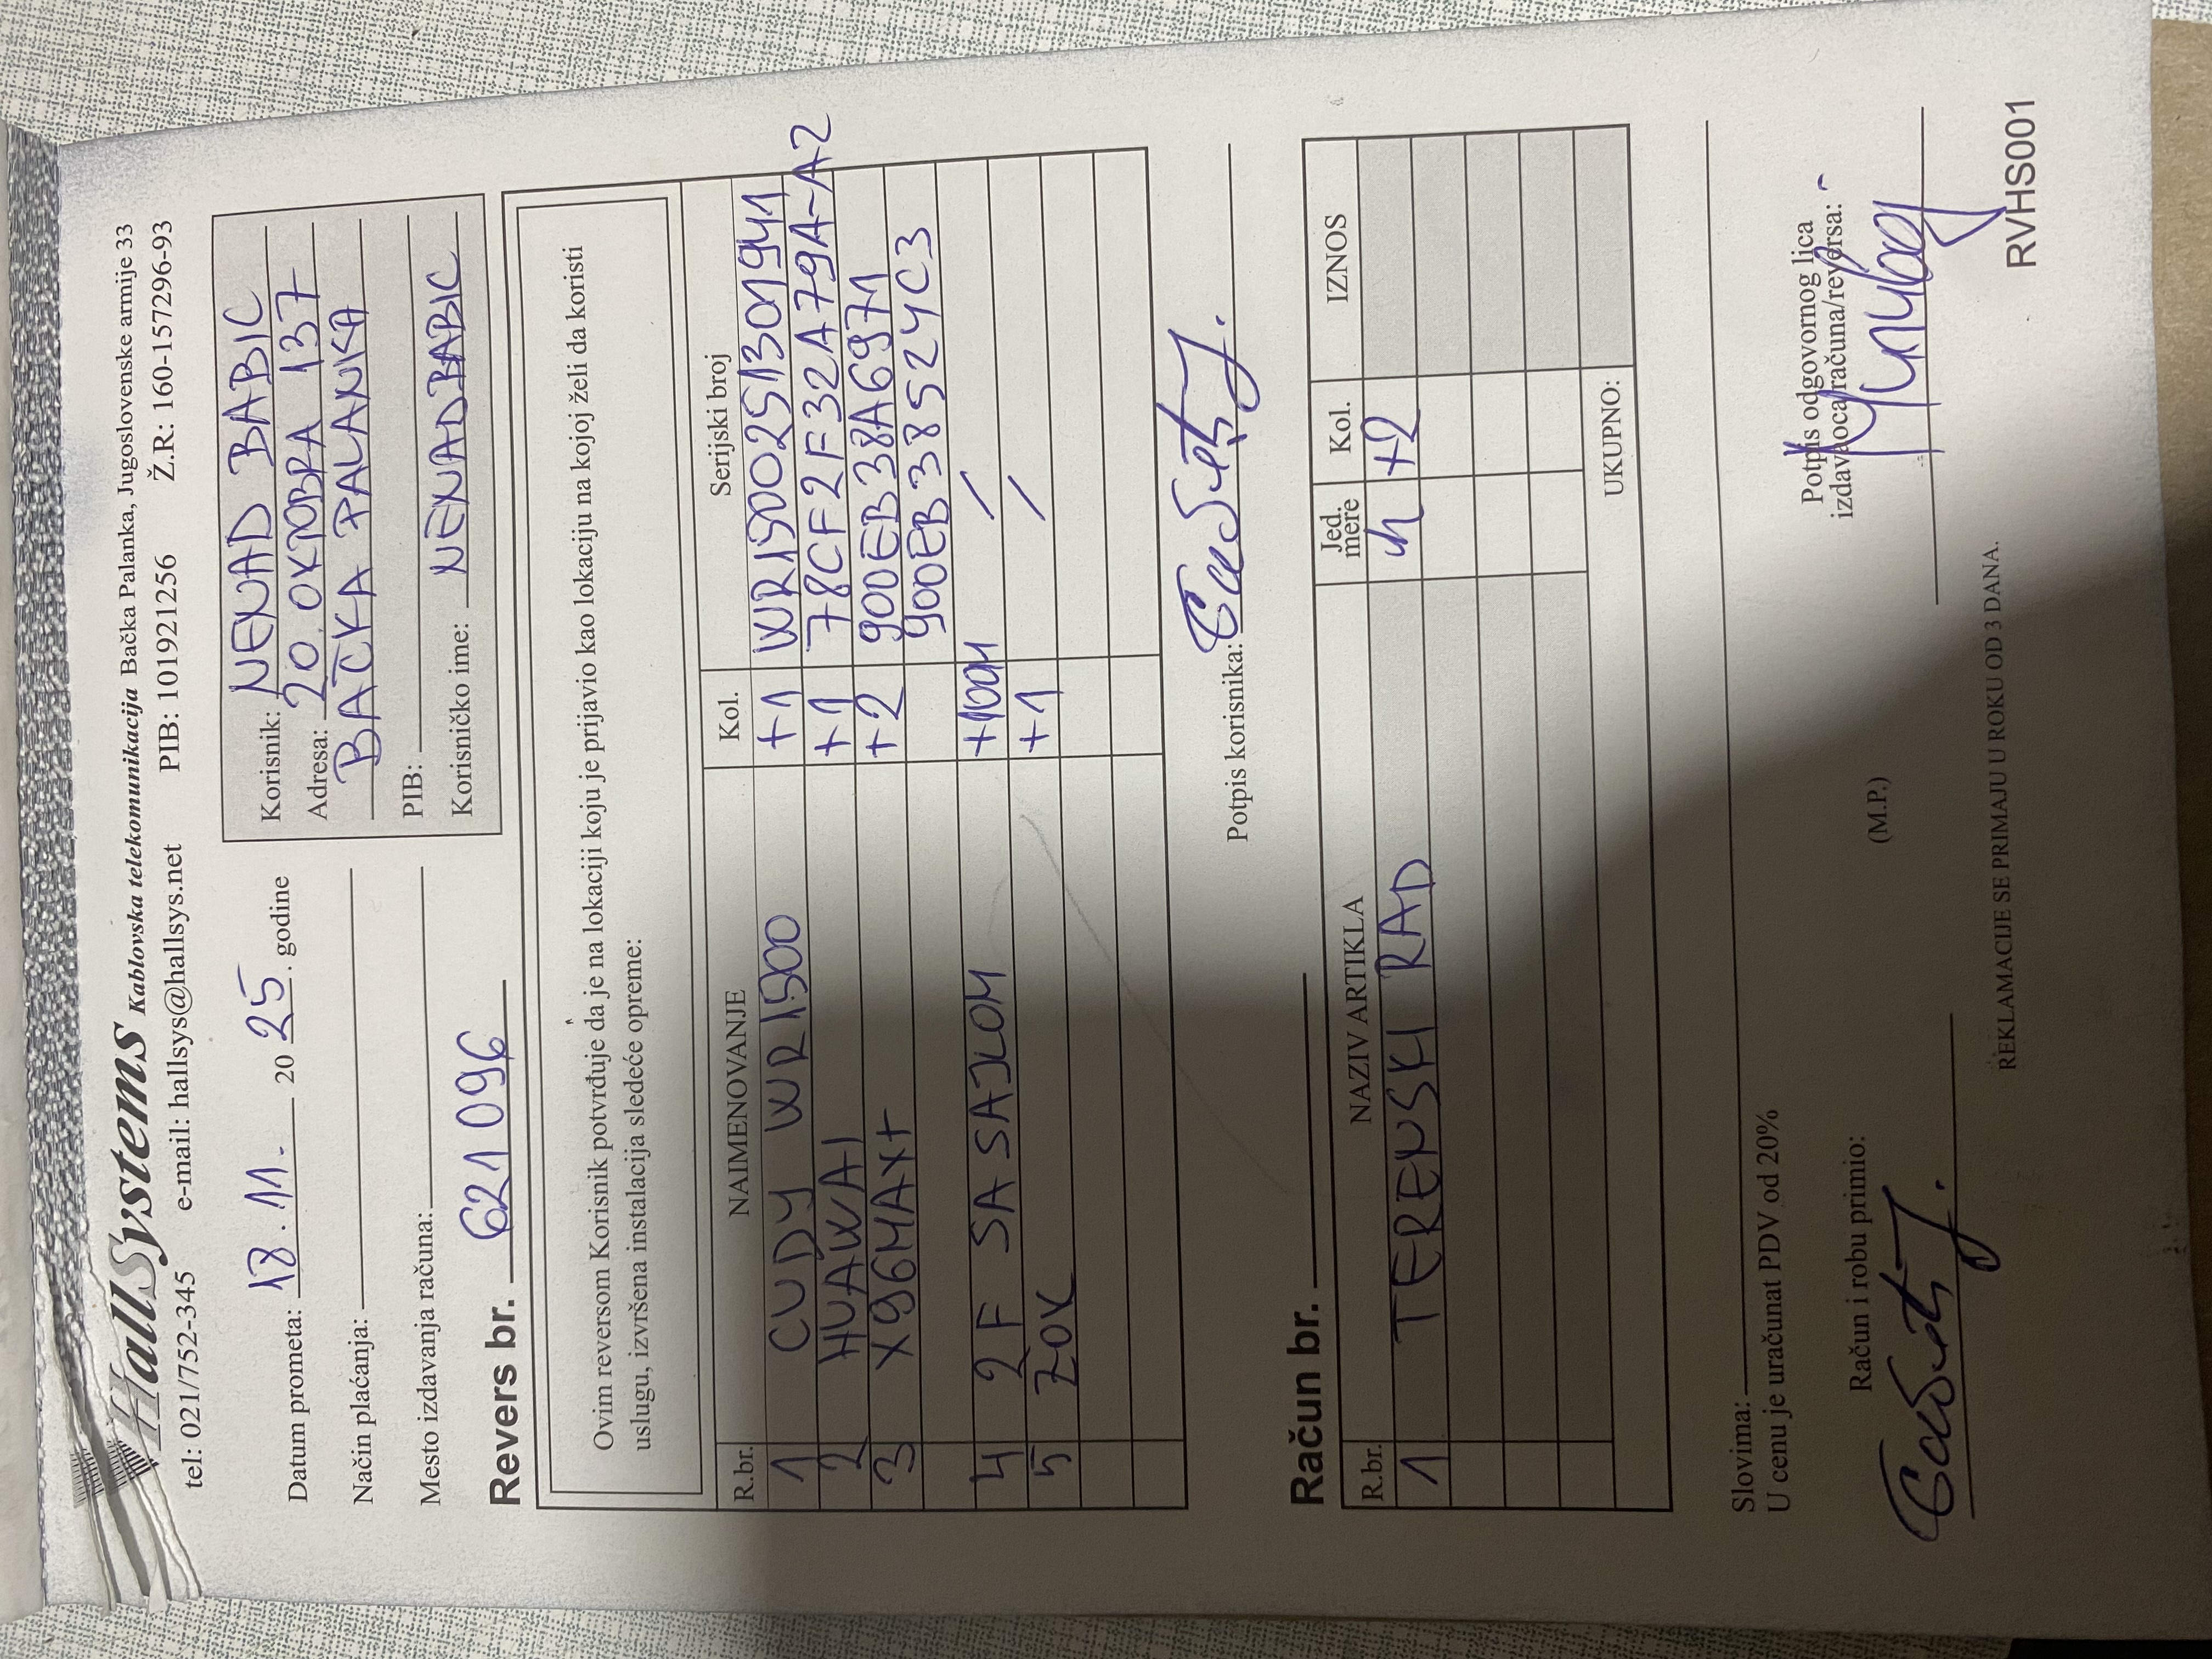 HallSystems Kablovska telekomunikacija Bačka Palanka, Jugoslovenske armije 33
tel: 021/752-345 e-mail: hallsys@hallsys.net PIB: 101921256 Ž.R: 160-157296-93
Datum prometa: 18.11. 2025. godine
Način plaćanja:
Mesto izdavanja računa:
Korisnik: NENAD BABIC
Adresa: 20.OKTOBRA 137
BAČKA PALANKA
PIB:
Korisničko ime: NENADBABIC
Revers br. 621096
Ovim reversom Korisnik potvrđuje da je na lokaciji koju je prijavio kao lokaciju na kojoj želi da koristi
uslugu, izvršena instalacija sledeće opreme:
R.br. NAIMENOVANJE Kol. Serijski broj
1 CUDY WR1500 +1 WR1500251301941
2 HUAWAI +1 78CF2F32A79A~A2
3 X96MAX+ +2 900EB38A6971
900EB38524C3
4 2F SA SAJLOM +100M /
5 ZOK +1 /
Potpis korisnika:
Račun br.
R.br. NAZIV ARTIKLA Jed. mere Kol. IZNOS
1 TERENSKI RAD h +2
UKUPNO:
Slovima:
U cenu je uračunat PDV od 20%
Račun i robu primio:
(M.P.)
Potpis odgovornog lica
izdavaoca računa/reversa:
REKLAMACIJE SE PRIMAJU U ROKU OD 3 DANA.
RVHS001